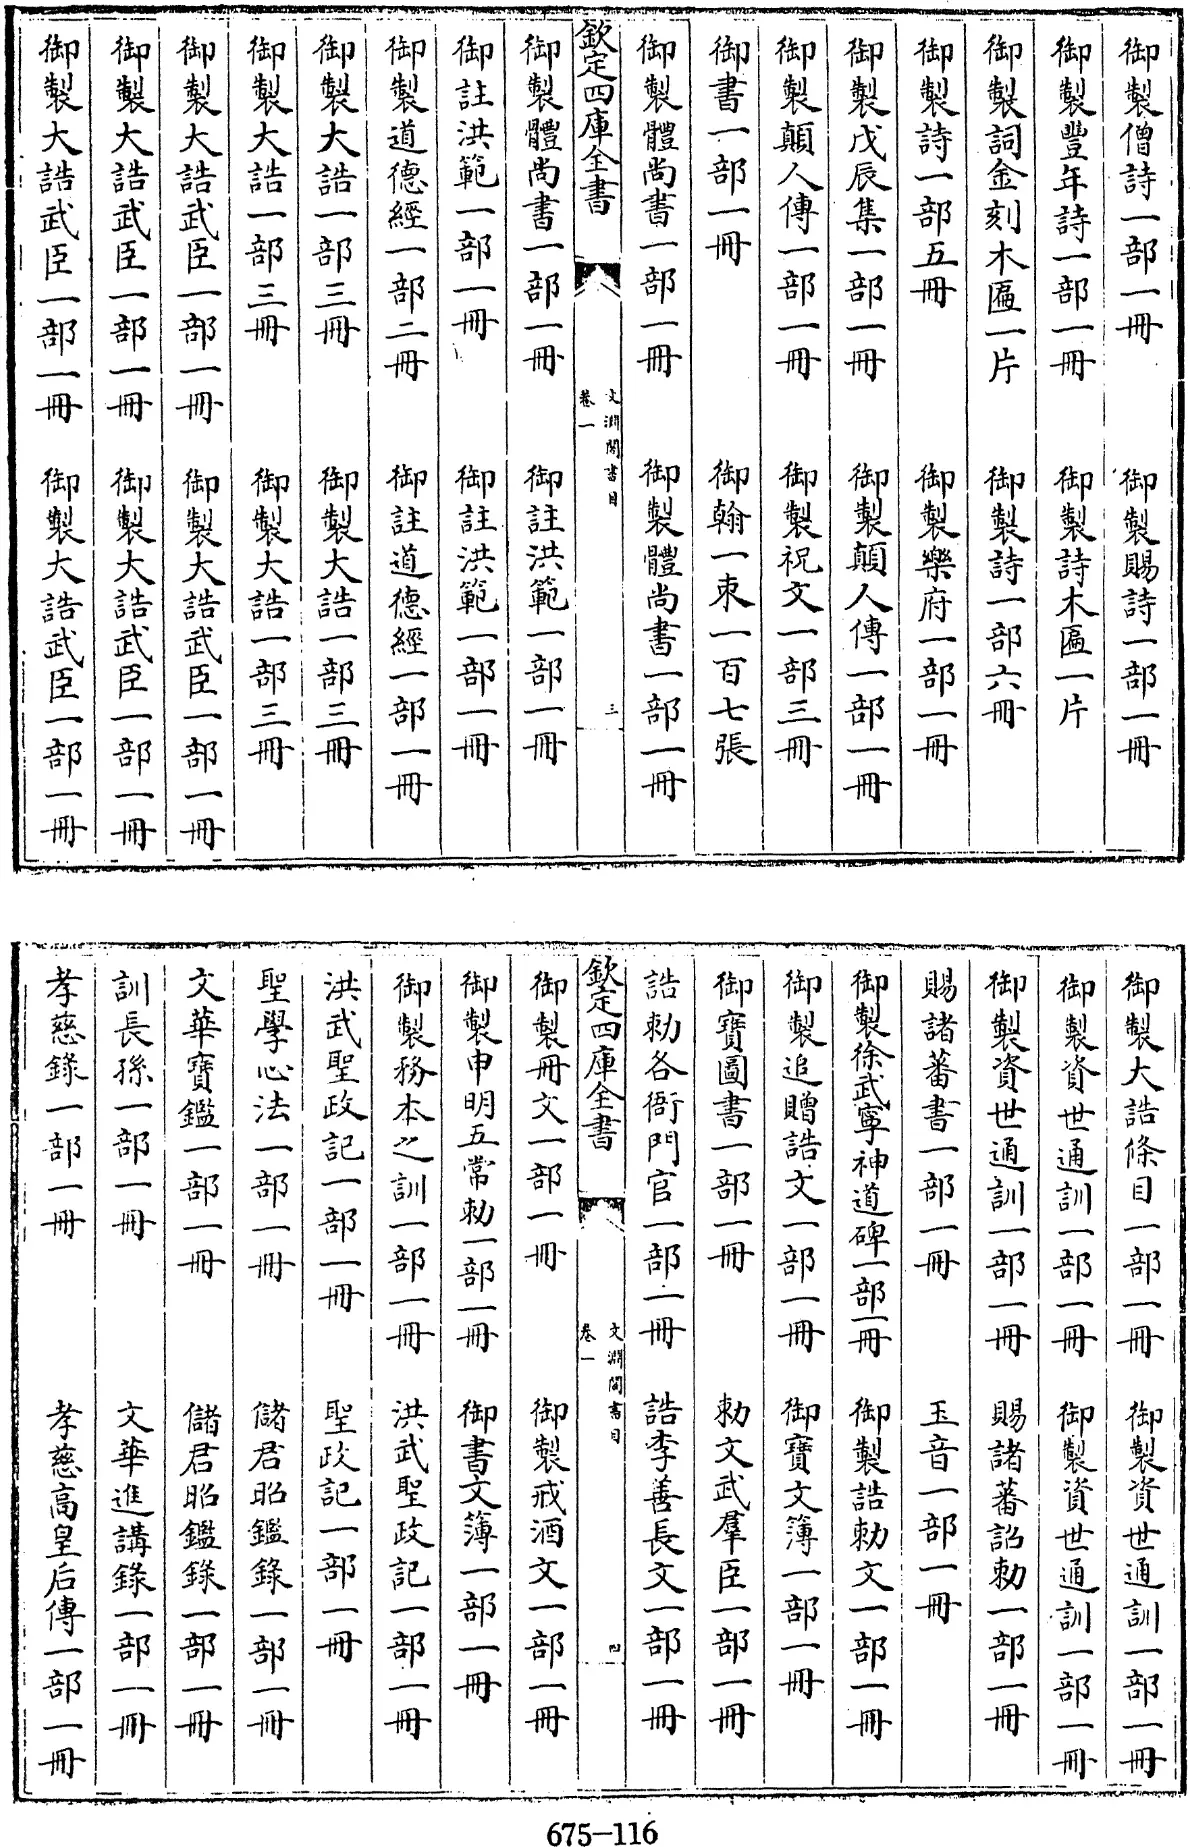 御製僧詩一部一冊　御製賜詩一部一冊
御製豐年詩一部一冊　御製詩木匾一片
御製詞金刻木匾一片　御製詩一部六冊
御製詩一部五冊　御製樂府一部一冊
御製戊辰集一部一冊　御製顛人傳一部一冊
御製顛人傳一部一冊　御製祝文一部三冊
御書一部一冊　御翰一束一百七張
御製體尚書一部一冊　御製體尚書一部一冊
欽定四庫全書　文淵閣書目卷一　三
御製體尚書一部一冊　御註洪範一部一冊
御註洪範一部一冊　御註洪範一部一冊
御製道德經一部二冊　御註道德經一部一冊
御製大誥一部三冊　御製大誥一部三冊
御製大誥一部三冊　御製大誥一部三冊
御製大誥武臣一部一冊　御製大誥武臣一部一冊
御製大誥武臣一部一冊　御製大誥武臣一部一冊
御製大誥武臣一部一冊　御製大誥武臣一部一冊
御製大誥條目一部一冊　御製資世通訓一部一冊
御製資世通訓一部一冊　御製資世通訓一部一冊
御製資世通訓一部一冊　賜諸蕃詔勅一部一冊
賜諸蕃書一部一冊　玉音一部一冊
御製徐武寧神道碑一部一冊　御製誥勅文一部一冊
御製追贈誥文一部一冊　御寶文簿一部一冊
御寶圖書一部一冊　勅文武羣臣一部一冊
誥勅各衙門官一部一冊　誥李善長文一部一冊
欽定四庫全書　文淵閣書目卷一　四
御製冊文一部一冊　御製戒酒文一部一冊
御製申明五常勅一部一冊　御書文簿一部一冊
御製務本之訓一部一冊　洪武聖政記一部一冊
洪武聖政記一部一冊　聖政記一部一冊
聖學心法一部一冊　儲君昭鑑錄一部一冊
文華寶鑑一部一冊　儲君昭鑑錄一部一冊
訓長孫一部一冊　文華進講錄一部一冊
孝慈錄一部一冊　孝慈高皇后傳一部一冊
675-116